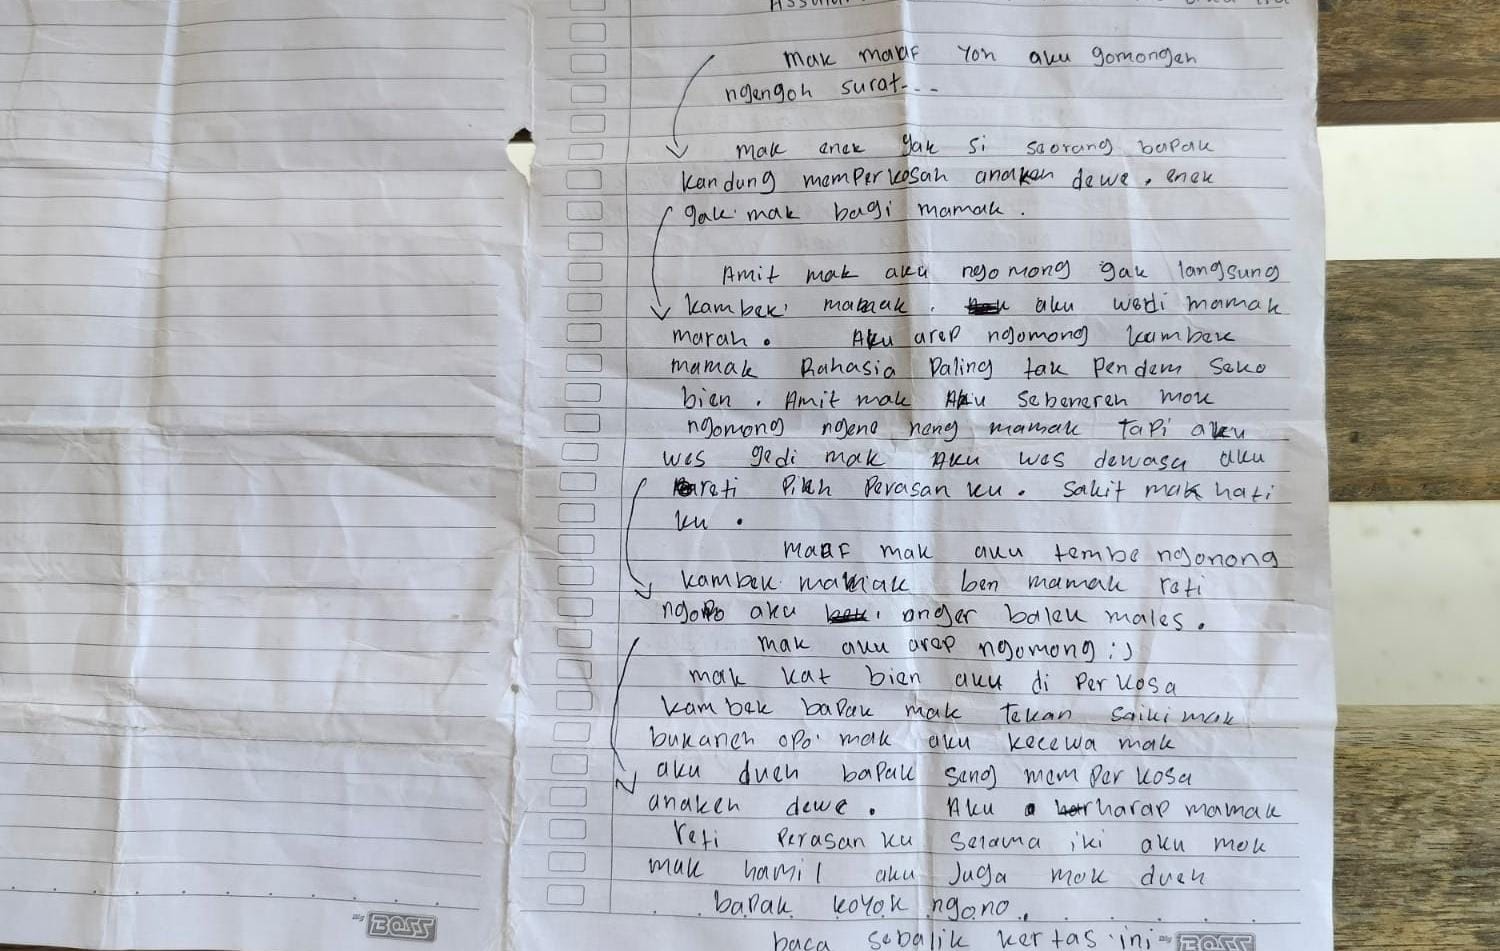 mak maaf yoh aku gomongen
ngengoh surat...
mak enek gak si seorang bapak
kandung memperkosah anaken dewe, enek
gak mak bagi mamak.
Amit mak aku ngomong gak langsung
kambek mamak. aku wedi mamak
marah. Aku arep ngomong kambek
mamak Rahasia Paling tak Pendem Seko
bien. Amit mak Aku Sebenereh mok
ngomong ngene neng mamak tapi aku
wes gedi mak Aku wes dewasa aku
reti Pikh Perasan ku. Sakit mak hati
ku.
maaf mak aku tembe ngonong
kambek mamak ben mamak reti
ngopo aku anger balek males.
mak aku arep ngomong :)
mak kat bien aku di Perkosa
kambek bapak mak tekan saiki mak
bukaneh opo mak aku kecewa mak
aku dueh bapak seng memperkosa
anakeh dewe. Aku harap mamak
reti Perasan ku Selama iki aku mok
mak hamil aku Juga mok dueh
bapak koyok ngono.
baca sebalik kertas ini
BOSS
BOSS